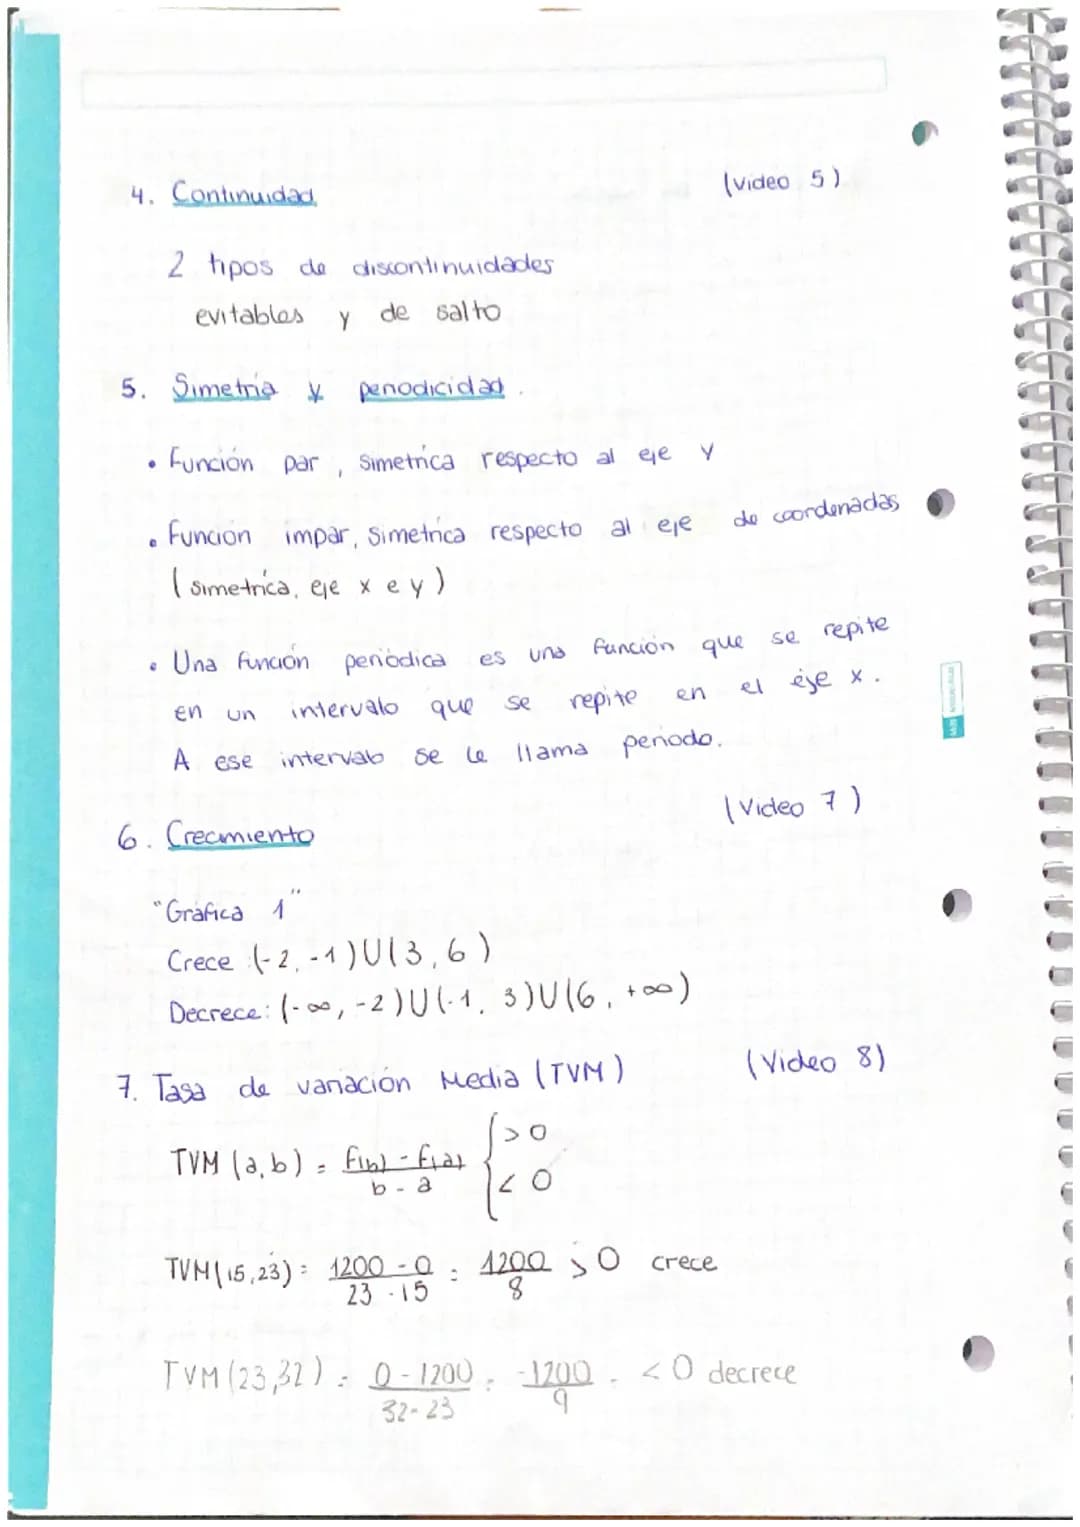 4. Continuidad (Video 5)
2 tipos de discontinuidades
evitables y de salto
5. Simetría y periodicidad.
• Función par, simétrica respecto al eje y
• Función impar, simétrica respecto al eje de coordenadas
(simétrica, eje x e y)
• Una función periódica es una función que se repite
en un intervalo que se repite en el eje x.
A ese intervalo se le llama periodo.
(Video 7)
6. Crecimiento
"Gráfica 1"
Crece: (-2, -1)U(3, 6)
Decrece: (-∞, -2)U(-1, 3)U(6, +∞)
7. Tasa de variación Media (TVM) (Video 8)
TVM (a,b) = f(b) - f(a) / b - a { > 0 < 0
TVM(15,23) = 1200 - 0 / 23 - 15 = 1200 / 8 > 0 crece
TVM(23,32) = 0 - 1200 / 32 - 23 = -1200 / 9 = < 0 decrece